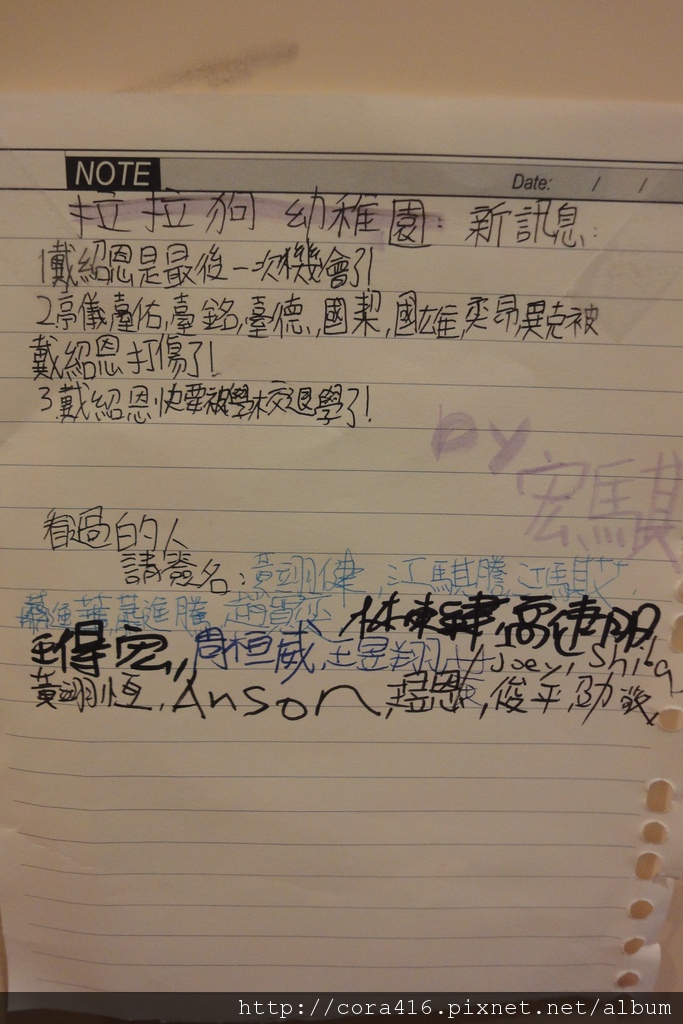 NOTE
Date: / /
拉拉狗 幼稚園: 新訊息:
1.戴紹恩是最後一次機會了!
2.亭儀,臺佑,臺銘,臺德,國梨,國雄,奕昂,異克被
戴紹恩打傷了!
3.戴紹恩快要被學校退學了!
by
宏騏
看過的人
請簽名:黃翊健,江騏騰,江騏艾,
進騰
林東緯,高健朋,
王得宏,周桓威,王昱翔,Joey,Shiba
黃翊恆,Anson,俊平,
http://cora416.pixnet.net/album